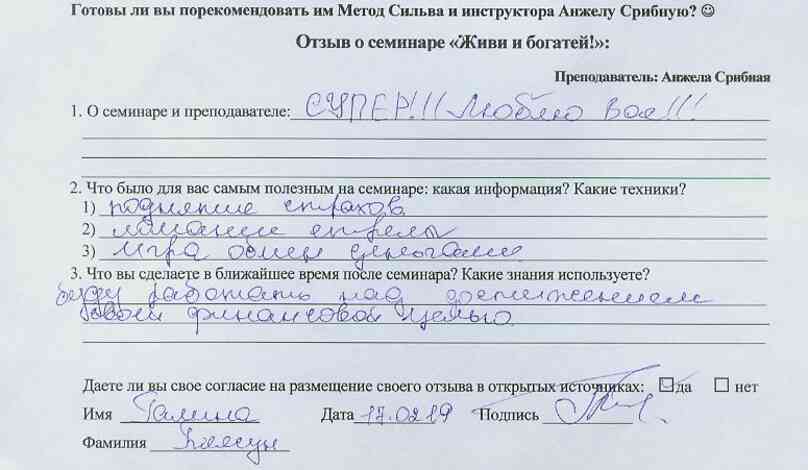 Готовы ли вы порекомендовать им Метод Сильва и инструктора Анжелу Срибную? ☺
Отзыв о семинаре «Живи и богатей!»:
Преподаватель: Анжела Срибная
1. О семинаре и преподавателе: СУПЕР!!! Люблю Вас!!!
2. Что было для вас самым полезным на семинаре: какая информация? Какие техники?
1) поднятие страхов
2) ломание стрелы
3) Игра обмен деньгами
3. Что вы сделаете в ближайшее время после семинара? Какие знания используете?
буду работать над достижением
своей финансовой целью
Даете ли вы свое согласие на размещение своего отзыва в открытых источниках: да нет
Имя Галина Дата 17.0219 Подпись
Фамилия